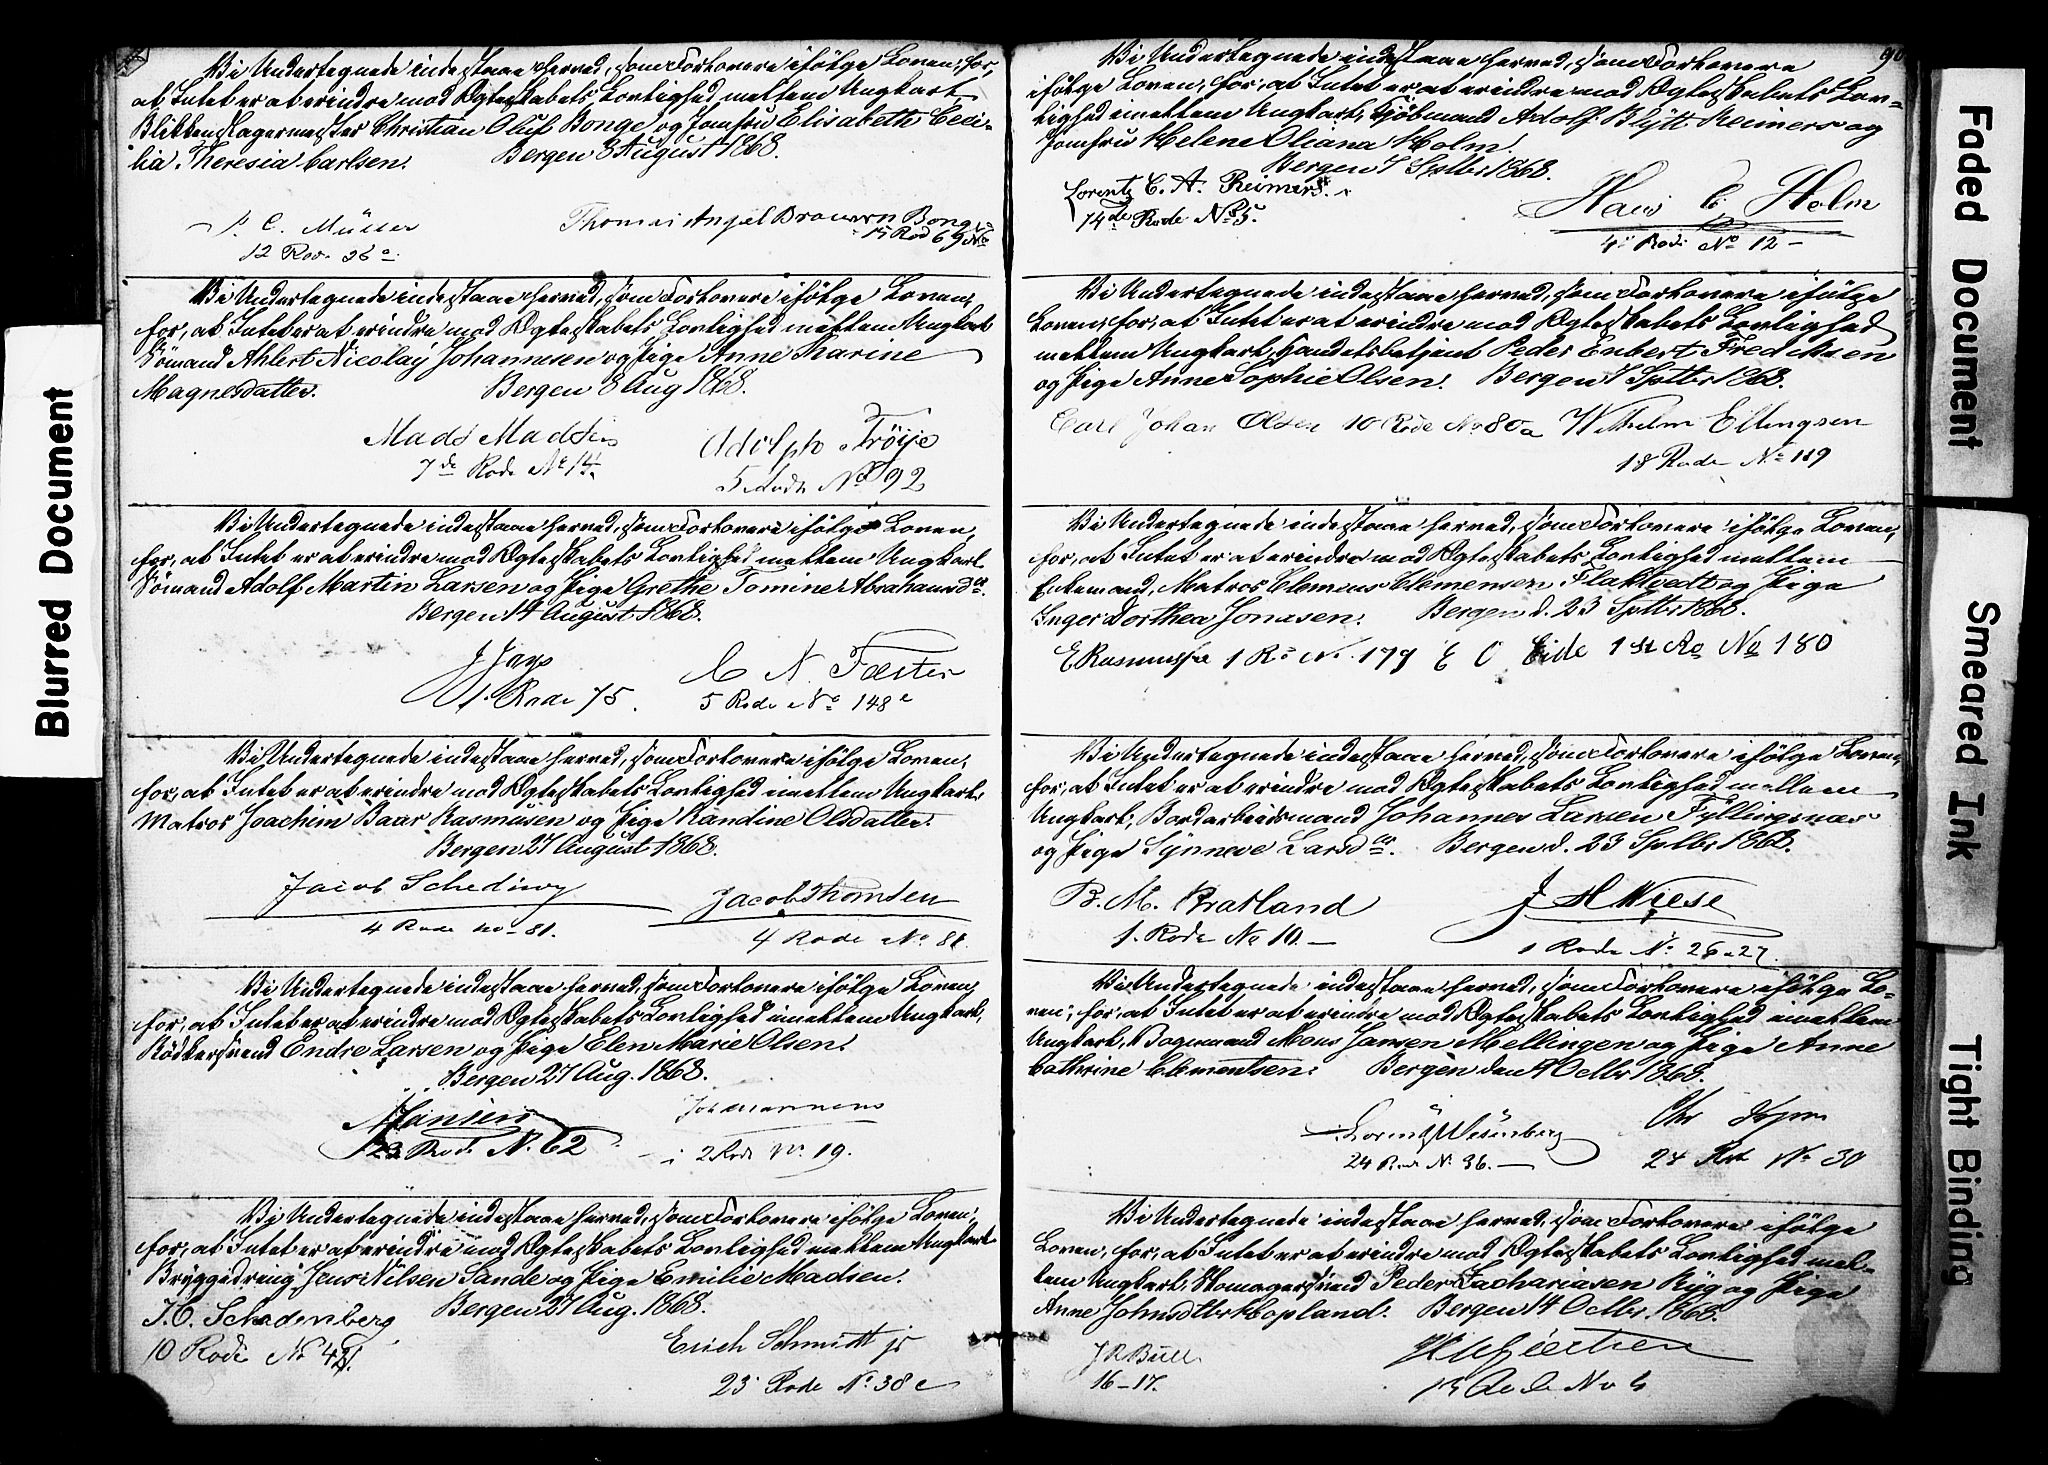 Vi Undertegnede indestaae herved, som Forlovere ifölge Loven, for,
at Intet er at erindre mod Ægteskabets Lovlighed mellem Ungkarl
Blikkenslagermester Christian Oluf Bonge og Jomfru Elisabeth Ceci-
lia Theresia Carlsen. Bergen 8 August 1868.
P. C. Müller Thomas Angel Brown Bonge
12 Rode 36a 15 Rod 69 No
Vi Undertegnede indestaae herved, som Forlovere ifölge Loven,
for, at Intet er at erindre mod Ægteskabets Lovlighed mellem Ungkarl
Sömand Ahlert Nicolay Johannesen og Pige Anne Karine
Magnesdatter. Bergen 8 Aug 1868.
Mads Madsen Adolph Tröije
7de Rode No 14 5 Rode No 92
Vi Undertegnede indestaae herved, som Forlovere ifölge Loven,
for, at Intet er at erindre mod Ægteskabets Lovlighed mellem Ungkarl
Sömand Adolf Martin Larsen og Pige Grethe Tomine Abrahamsdtr.
Bergen 14 August 1868.
C N Fæster
1. Rode 75. 5 Rode No 148
Vi Undertegnede indestaae herved, som Forlovere ifölge Loven,
for, at Intet er at erindre mod Ægteskabets Lovlighed imellem Ungkarl,
Matros Joachim Baar Rasmusen og Pige Randine Olsdatter.
Bergen 27 August 1868.
Jacob Schediwy Jacob Thomsen
4 Rode No 81. 4 Rode No 81
Vi Undertegnede indestaae herved, som Forlovere ifölge Loven,
for, at Intet er at erindre mod Ægteskabets Lovlighed imellem Ungkarl,
Bödkersvend Endre Larsen og Pige Elen Marie Olsen.
Bergen 27 Aug. 1868.
Hansen Johannnens
23 Rode N. 62 2 Rode No 19.
Vi Undertegnede indestaae herved, som Forlovere ifölge Loven,
for, at Intet er at erindre mod Ægteskabets Lovlighed mellem Ungkarl
Bryggedreng Jens Nilsen Sande og Pige Emilie Madsen.
Bergen 27 Aug. 1868.
J. C. Schadenberg
10 Rode No 47. Erich Schmidt jr
23 Rode No 38c
90
Vi Undertegnede indestaae herved, som Forlovere
ifölge Loven, for, at Intet er at erindre mod Ægteskabets Lov-
lighed imellem Ungkarl, Kjöbmand Adolf Blytt Reimers og
Jomfru Helene Oliana Holm.
Bergen 7 Septbr 1868.
Lorentz C. A. Reimers. Hans C Holm
14de Rode No 5. 4de Rode No 12
Vi Undertegnede indestaae herved, som Forlovere ifölge
Loven, for, at Intet er at erindre mod Ægteskabets Lovlighed
mellem Ungkarl, Handelsbetjent Peder Enbert Fredriksen
og Pige Anne Sophie Olsen. Bergen 7 Septbr 1868.
Carl Johan Olsen 10 Rode No 80a Wilhelm Ellingsen
18 Rode No 119
Vi Undertegnede indestaae herved, som Forlovere ifölge Loven,
for, at Intet er at erindre mod Ægteskabets Lovlighed mellem
Enkemand, Matros Clemens Clemensen Flaktvedt og Pige
Inger Dorthea Jonasen. Bergen d. 23 Septbr 1868.
E Rasmussen 1 Ro No. 179 E C Eide 1st Ro No 180
Vi Undertegnede indestaae herved, som Forlovere ifölge Loven,
for, at Intet er at erindre mod Ægteskabets Lovlighed mellem
Ungkarl, Bordarbeidsmand Johannes Larsen Fyllingsnæs
og Pige Synneve Larsdtr. Bergen d. 23 Septbr 1868.
B. M. Bratland J H Wiese
1. Rode No 10. 1 Rode No 26-27.
Vi Undertegnede indestaae herved, som Forlovere ifölge Lo-
ven, for, at Intet er at erindre mod Ægteskabets Lovlighed imellem
Ungkarl, Bogemand Mons Jansen Mellingen og Pige Anne
Cathrine Clementsen. Bergen den 7 Octbr 1868.
Lorentz Wesenberg Chr
24 Rode No 36. 24 Rod No 30
Vi Undertegnede indestaae herved, som Forlovere ifölge
Loven, for, at Intet er at erindre mod Ægteskabets Lovlighed mel-
lem Ungkarl, Skomagersvend Peder Zachariasen Ryg og Pige
Anne Johnsdtr Hopland. Bergen 14 Octbr. 1868.
J R Bull
16-17. 13 Rode No 4
Blurred Document
Faded Document
Smeared Ink
Tight Binding